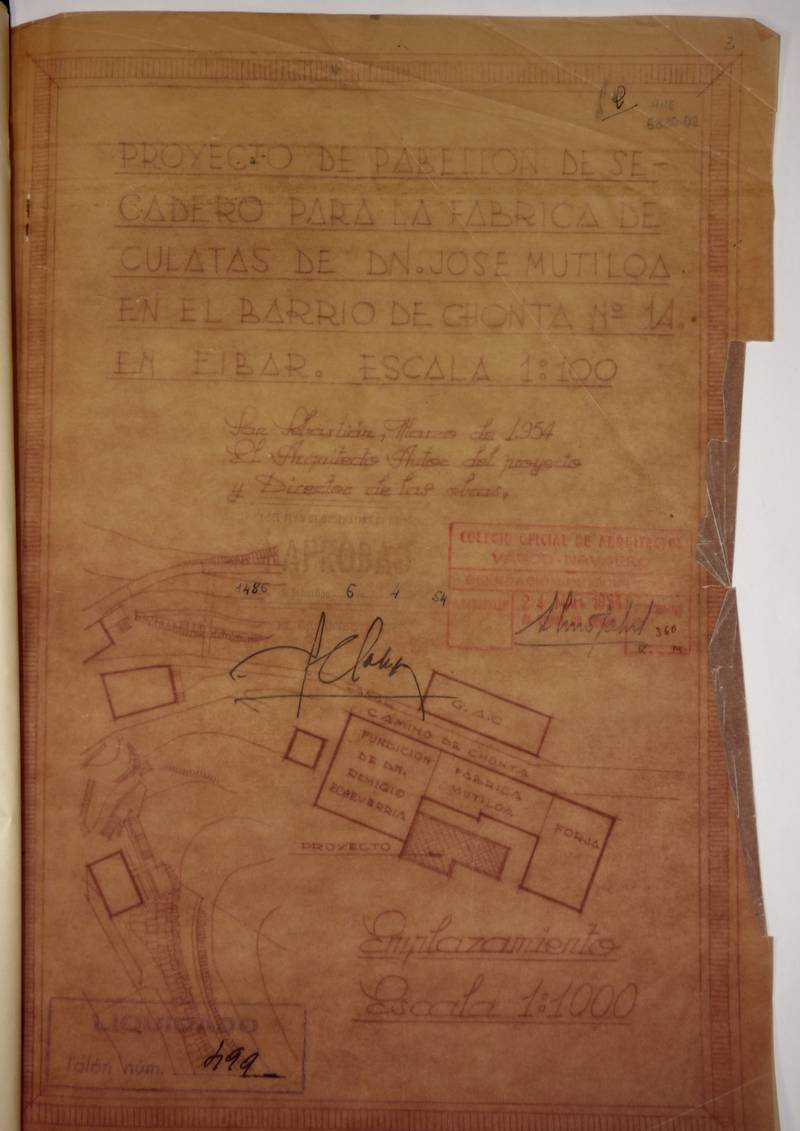 3
2
PROYECTO DE PABELLON DE SE-
CADERO PARA LA FABRICA DE
CULATAS DE DN. JOSE MUTILOA
EN EL BARRIO DE CHONTA Nº 14.
EN EIBAR. ESCALA 1:100
San Sebastián, Marzo de 1954
El Arquitecto Autor del proyecto
y Director de las obras.
APROBAD
1486 6 4 54
COLEGIO OFICIAL DE ARQUITECTOS
VASCO-NAVARRO
360
R. M.
G.A.C
CAMINO DE CHONTA
FUNDICION
DE DN.
REMIGIO
ECHEVERRIA
FABRICA
MUTILOA
FORJA
PROYECTO
Emplazamiento
Escala 1:1000
LIQUIDADO
Talón núm. 499